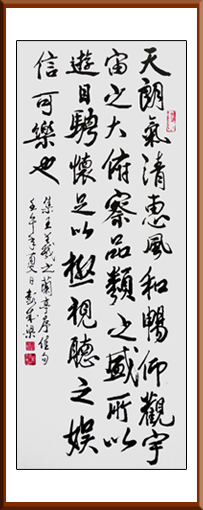 天朗氣清惠風和暢仰觀宇
宙之大俯察品類之盛所以
遊目騁懷足以極視聽之娛
信可樂也
集王羲之蘭亭序佳句
壬午年夏月書